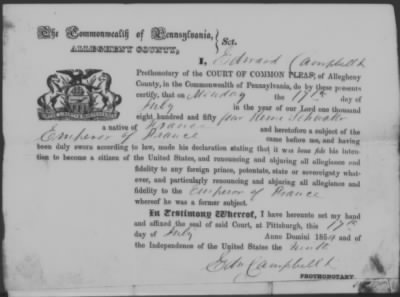 The Commonwealth of Pennsylvania,
ALLEGHENY COUNTY,
} Sct.
I, Edward Campbell
Prothonotary of the COURT OF COMMON PLEAS, of Allegheny
County, in the Commonwealth of Pennsylvania, do by these presents
certify, that on Monday the 17th day of
July in the year of our Lord one thousand
eight hundred and fifty four
a native of France and heretofore a subject of the
Emperor of France came before me, and having
been duly sworn according to law, made his declaration stating that it was bona fide his inten-
tion to become a citizen of the United States, and renouncing and abjuring all allegiance and
fidelity to any foreign prince, potentate, state or sovereignty what-
ever, and particularly renouncing and abjuring all allegiance and
fidelity to the Emperor of France
whereof he was a former subject.
In Testimony Whereof, I have hereunto set my hand
and affixed the seal of said Court, at Pittsburgh, this 17th
day of July Anno Domini 1854 and of
the Independence of the United States the
Edw Campbell
PROTHONOTARY